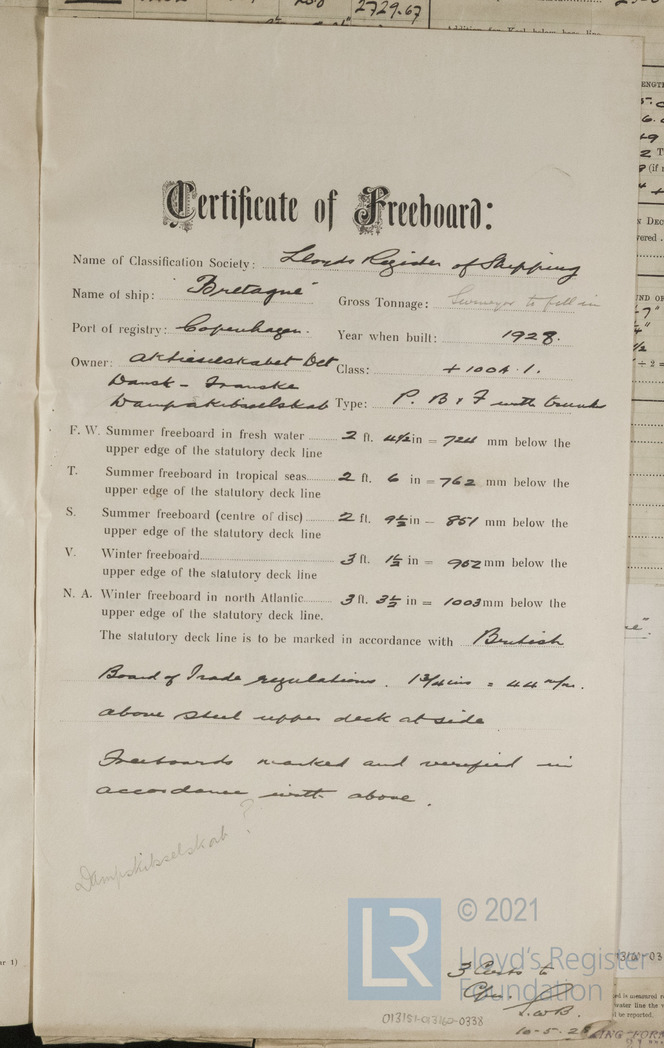 2729.67
Certificate of Freeboard:
Name of Classification Society: Lloyds Register of Shipping
Name of ship: "Bretagne" Gross Tonnage: Surveyor to fill in
Port of registry: Copenhagen. Year when built: 1928.
Owner: Aktieselskabet Det Class: +100A.1.
Dansk - Franske
Dampskibsselskab Type: P. B & F with trunks
F. W. Summer freeboard in fresh water 2 ft. 4½ in = 724 mm below the
upper edge of the statutory deck line
T. Summer freeboard in tropical seas 2 ft. 6 in = 762 mm below the
upper edge of the statutory deck line
S. Summer freeboard (centre of disc) 2 ft. 9½ in - 851 mm below the
upper edge of the statutory deck line
V. Winter freeboard 3 ft. 1½ in = 952 mm below the
upper edge of the statutory deck line
N. A. Winter freeboard in north Atlantic 3 ft. 3½ in = 1003 mm below the
upper edge of the statutory deck line.
The statutory deck line is to be marked in accordance with British
Board of Trade regulations. 1¾ ins = 44 m/m.
above steel upper deck at side
Freeboards marked and verified in
accordance with above.
Dampskibsselskab ?
© 2021
LR
Lloyd's Register
Foundation
3 Certs to
Cpn.
10-5-28
013151-013160-0338